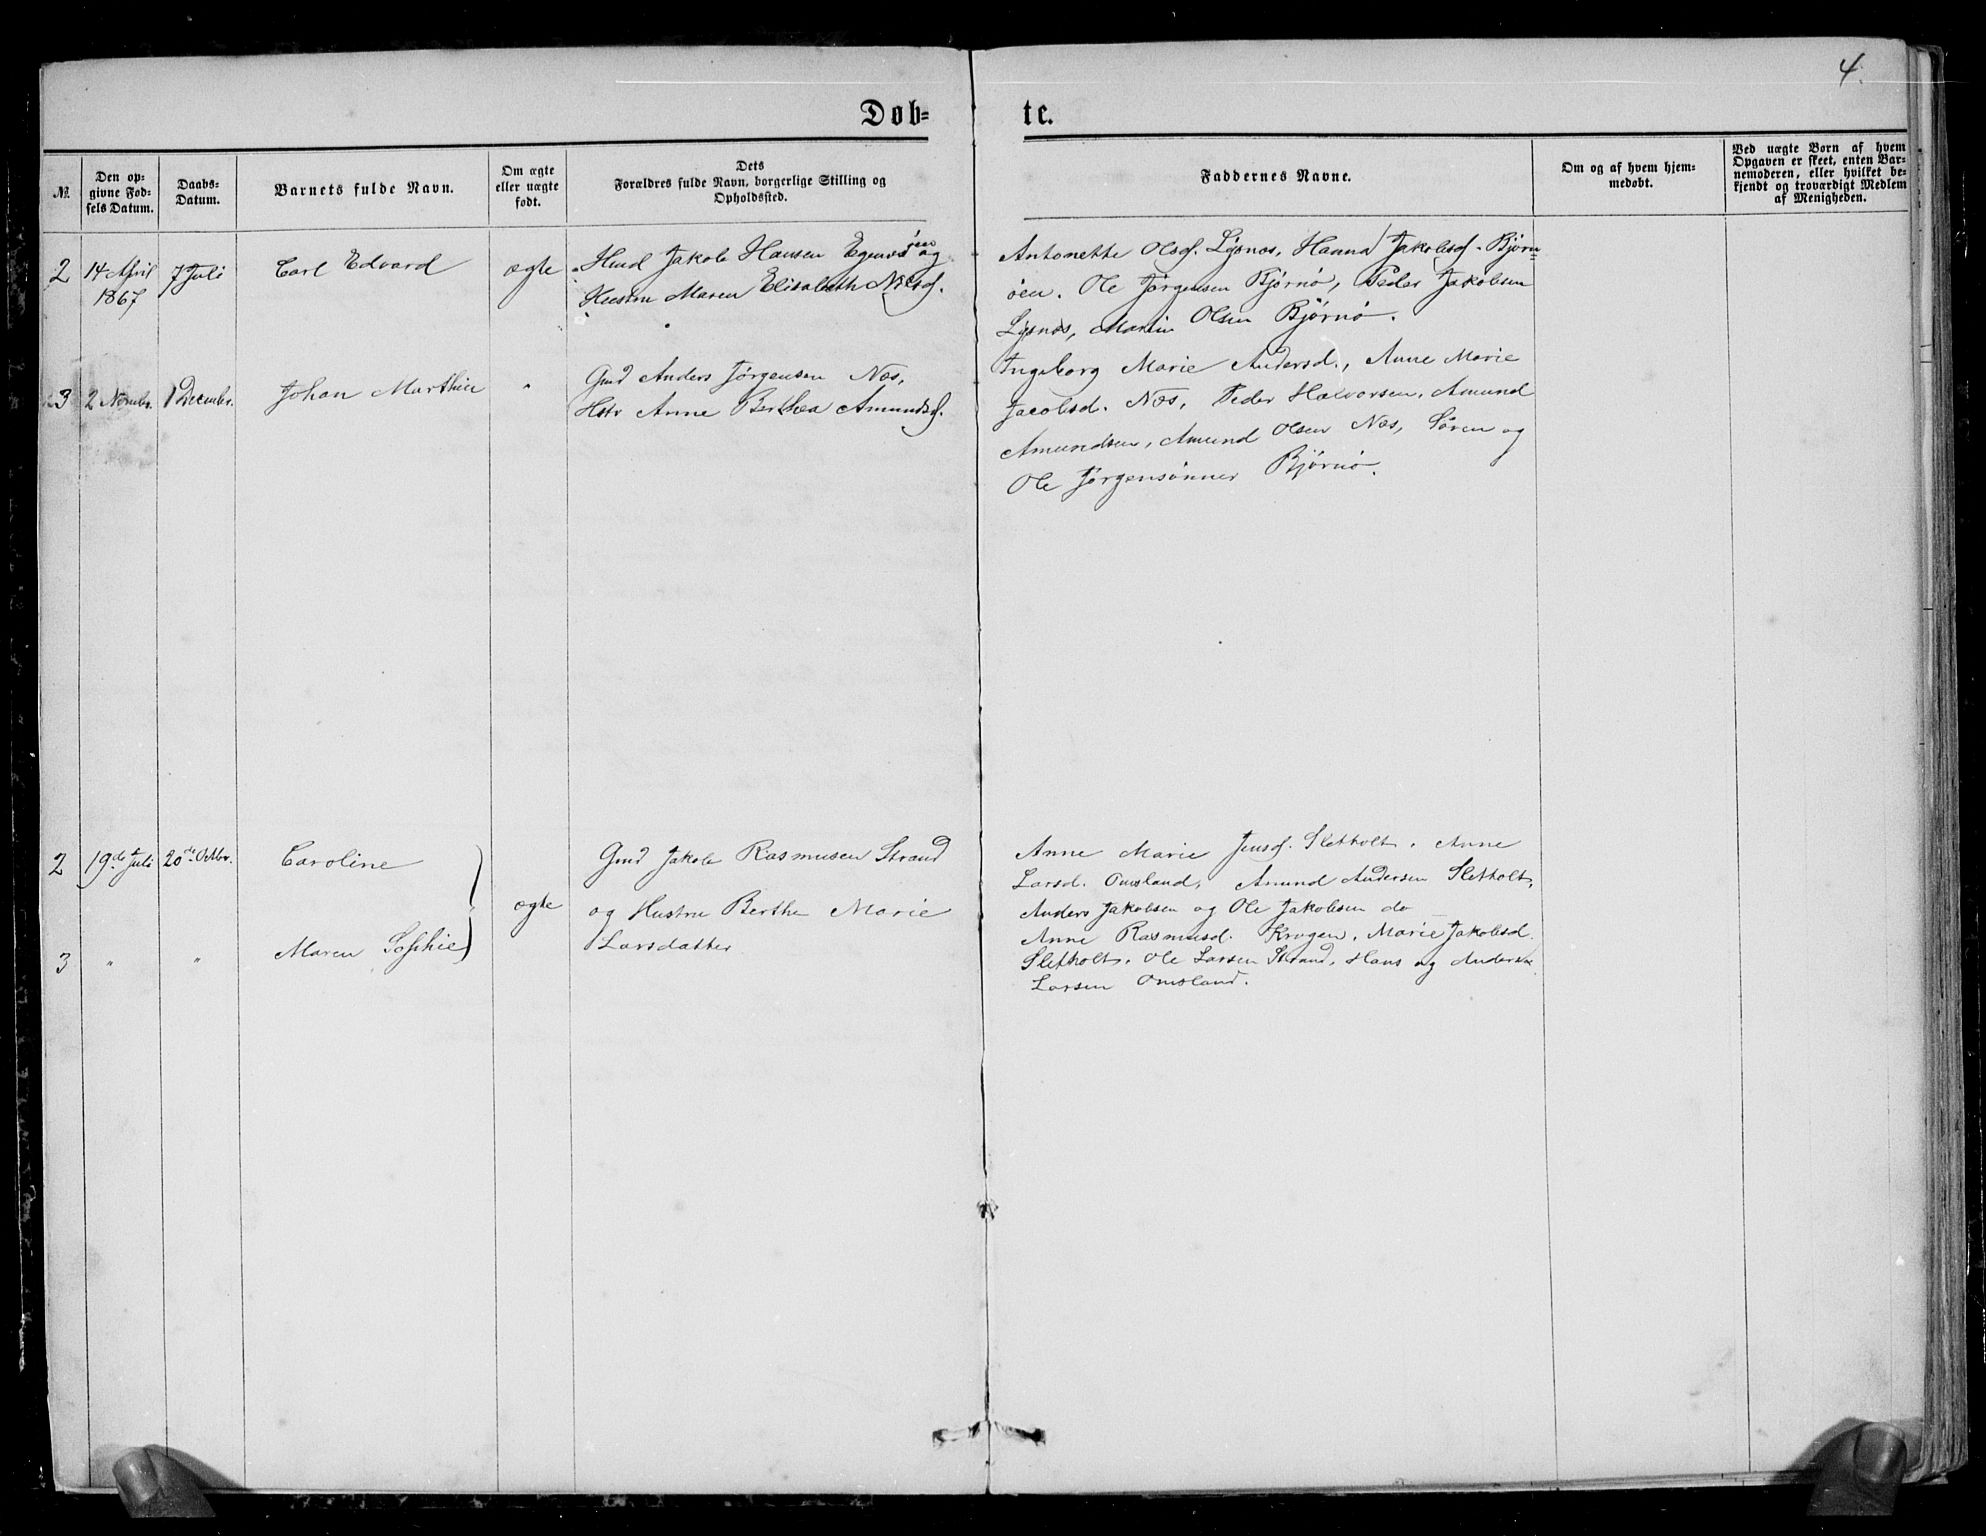 4.
Døb-
te.
№
Den op-
givne Fød-
sels Datum.
Daabs-
Datum.
Barnets fulde Navn.
Om ægte
eller uægte
født.
Dets
Forældres fulde Navn, borgerlige Stilling og
Opholdssted.
Faddernes Navne.
Om og af hvem hjem-
medøbt.
Ved uægte Børn af hvem
Opgaven er skeet, enten Bar-
nemoderen, eller hvilket be-
kjendt og troværdigt Medlem
af Menigheden.
2
14 April
1867
7 Juli
Carl Edvard
ægte
Hmd Jakob Hansen og
Hustru Maren Elisabeth Nilsd.
Antonette Olsd. Lysnæs, Hanna Jakobsd. Bjørn-
øen. Ole Jørgensen Bjørnø, Peder Jakobsen
Lysnæs, Martin Olsen Bjørnø.
3
2 Novmbr.
1 December.
Johan Marthin
"
Gmd Anders Jørgensen Næs,
Hstr Anne Berthea Amundsd.
Ingeborg Marie Andersd., Anne Marie
Jacobsd. Næs, Peder Halvorsen, Amund
Amundsen, Amund Olsen Næs, Søren og
Ole Jørgensønner Bjørnø.
2
19de Juli
20de Octbr.
Caroline
ægte
Gmd Jakob Rasmusen Strand
og Hustru Berthe Marie
Larsdatter
Anne Marie Jensd. Sletholt. Anne
Larsd. Omsland, Amund Andersen Sletholt,
Anders Jakobsen og Ole Jakobsen do
3
"
"
Maren Sophie
Anne Rasmusd. Krogen, Marie Jakobsd.
Sletholt. Ole Larsen Strand, Hans og Anders
Larsen Omsland.